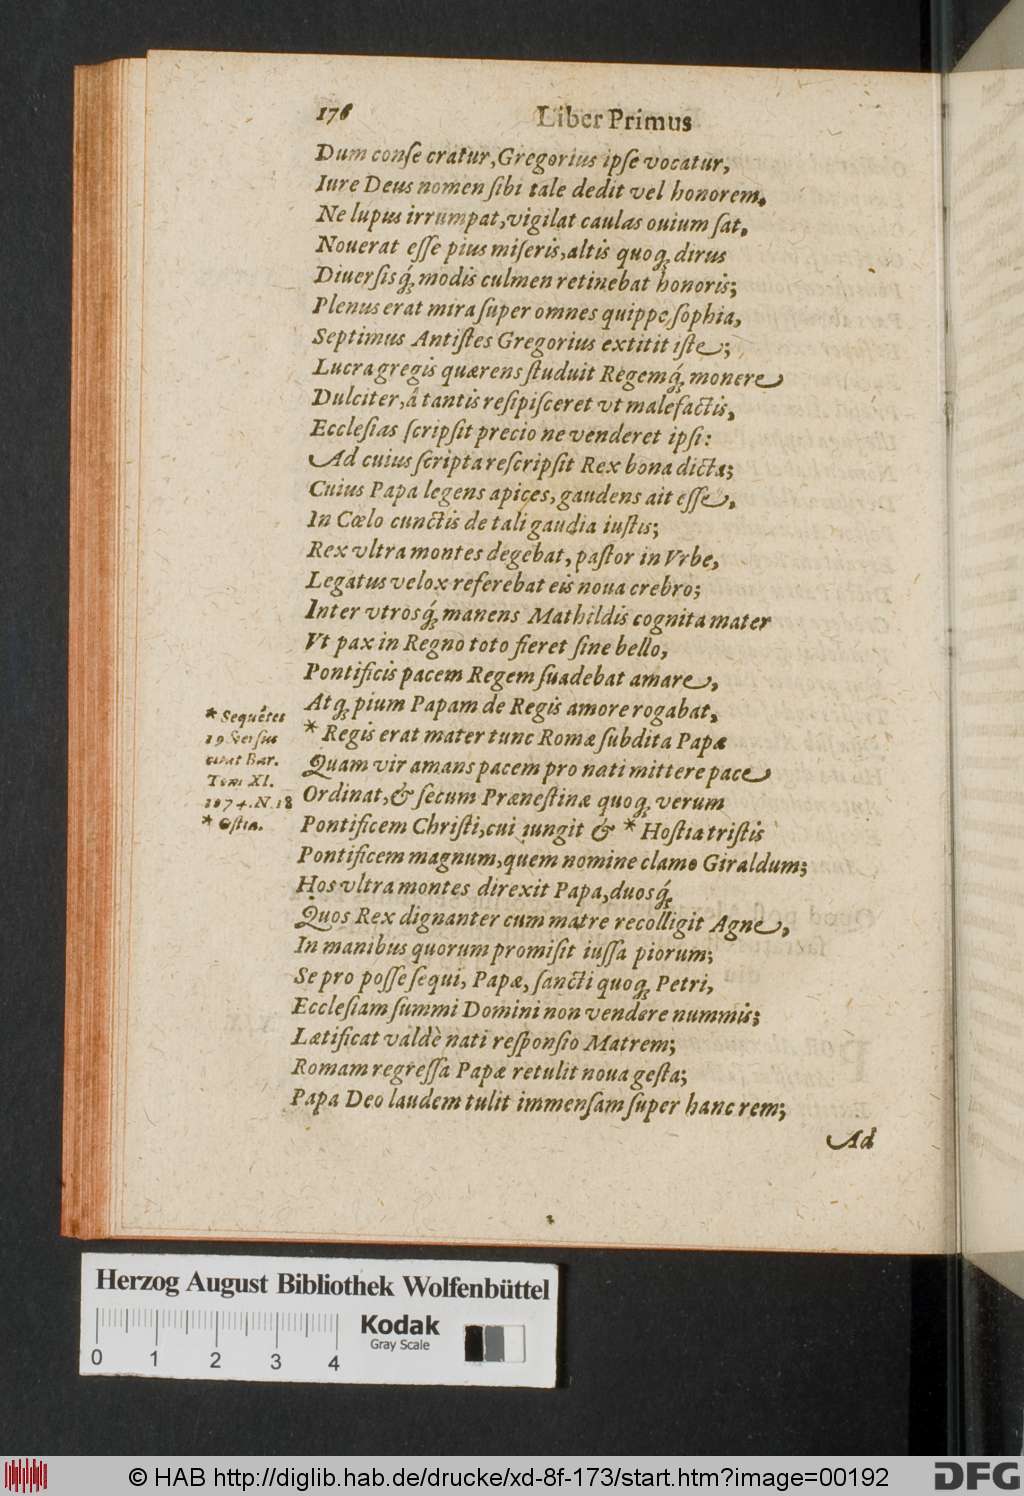 176 Liber Primus
Dum conse cratur, Gregorius ipse vocatur,
Iure Deus nomen sibi tale dedit vel honorem.
Ne lupus irrumpat, vigilat caulas ouium sat.
Nouerat esse pius miseris, altis quoq; dirus
Diuersisq́; modis culmen retinebat honoris;
Plenus erat mira super omnes quippe, sophia,
Septimus Antistes Gregorius extitit iste;
Lucra gregis quærens studuit Regemq́; monere
Dulciter, â tantis resipisceret vt malefactis,
Ecclesias scripsit precio ne venderet ipsi:
Ad cuius scripta rescripsit Rex bona dicta;
Cuius Papa legens apices, gaudens ait esse,
In Cœlo cunctis de tali gaudia iustis;
Rex vltra montes degebat, pastor in Vrbe,
Legatus velox referebat eis noua crebro;
Inter vtrosq́; manens Mathildis cognita mater
Vt pax in Regno toto fieret sine bello,
Pontificis pacem Regem suadebat amare,
Atq; pium Papam de Regis amore rogabat,
* Regis erat mater tunc Romæ subdita Papæ
Quam vir amans pacem pro nati mittere pace
Ordinat, & secum Prænestinæ quoq; verum
Pontificem Christi, cui iungit & * Hostia tristis
Pontificem magnum, quem nomine clamo Giraldum;
Hos vltra montes direxit Papa, duosq́;
Quos Rex dignanter cum matre recolligit Agne,
In manibus quorum promisit iussa piorum;
Se pro posse sequi, Papæ, sancti quoq; Petri,
Ecclesiam summi Domini non vendere nummis;
Lætificat valdè nati responsio Matrem;
Romam regressa Papæ retulit noua gesta;
Papa Deo laudem tulit immensam super hanc rem;
Ad
* Sequẽtes
19 Versus
citat Bar.
Tom XI.
1074. N. 18
* Ostia.
Herzog August Bibliothek Wolfenbüttel
0 1 2 3 4
Kodak
Gray Scale
© HAB http://diglib.hab.de/drucke/xd-8f-173/start.htm?image=00192
DFG